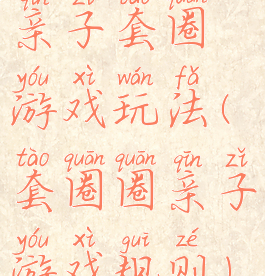 qīn zǐ tào quān
亲子套圈
yóu xì wán fǎ
游戏玩法(
tào quān quān qīn zǐ
套圈圈亲子
yóu xì guī zé
游戏规则)